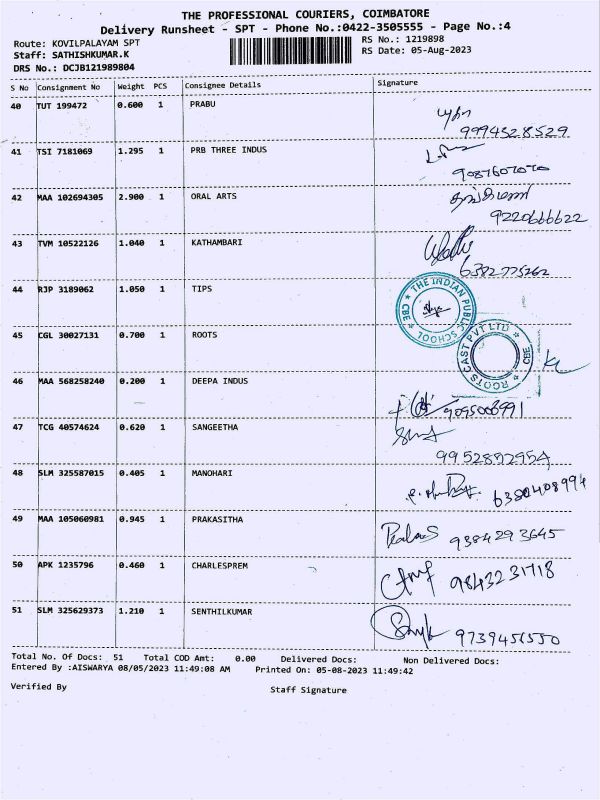 THE PROFESSIONAL COURIERS, COIMBATORE
Delivery Runsheet - SPT - Phone No.:0422-3505555 - Page No.:4
Route: KOVILPALAYAM SPT
RS No.: 1219898
Staff: SATHISHKUMAR.K
RS Date: 05-Aug-2023
DRS No.: DCJB121989804
S No Consignment No Weight PCS Consignee Details Signature
40 TUT 199472 0.600 1 PRABU
9994328529
41 TSI 7181069 1.295 1 PRB THREE INDUS
42 MAA 102694305 2.900 1 ORAL ARTS
9220666622
43 TVM 10522126 1.040 1 KATHAMBARI
6382775262
44 RJP 3189062 1.050 1 TIPS
THE INDIAN PUBLIC SCHOOL CBE
45 CGL 30027131 0.700 1 ROOTS
ROOTS CAST PVT LTD CBE
46 MAA 568258240 0.200 1 DEEPA INDUS
9095006991
47 TCG 40574624 0.620 1 SANGEETHA
9952892954
48 SLM 325587015 0.405 1 MANOHARI
6380408994
49 MAA 105060981 0.945 1 PRAKASITHA
9384293645
50 APK 1235796 0.460 1 CHARLESPREM
9843231718
51 SLM 325629373 1.210 1 SENTHILKUMAR
9739456550
Total No. Of Docs: 51 Total COD Amt: 0.00 Delivered Docs: Non Delivered Docs:
Entered By :AISWARYA 08/05/2023 11:49:08 AM Printed On: 05-08-2023 11:49:42
Verified By Staff Signature